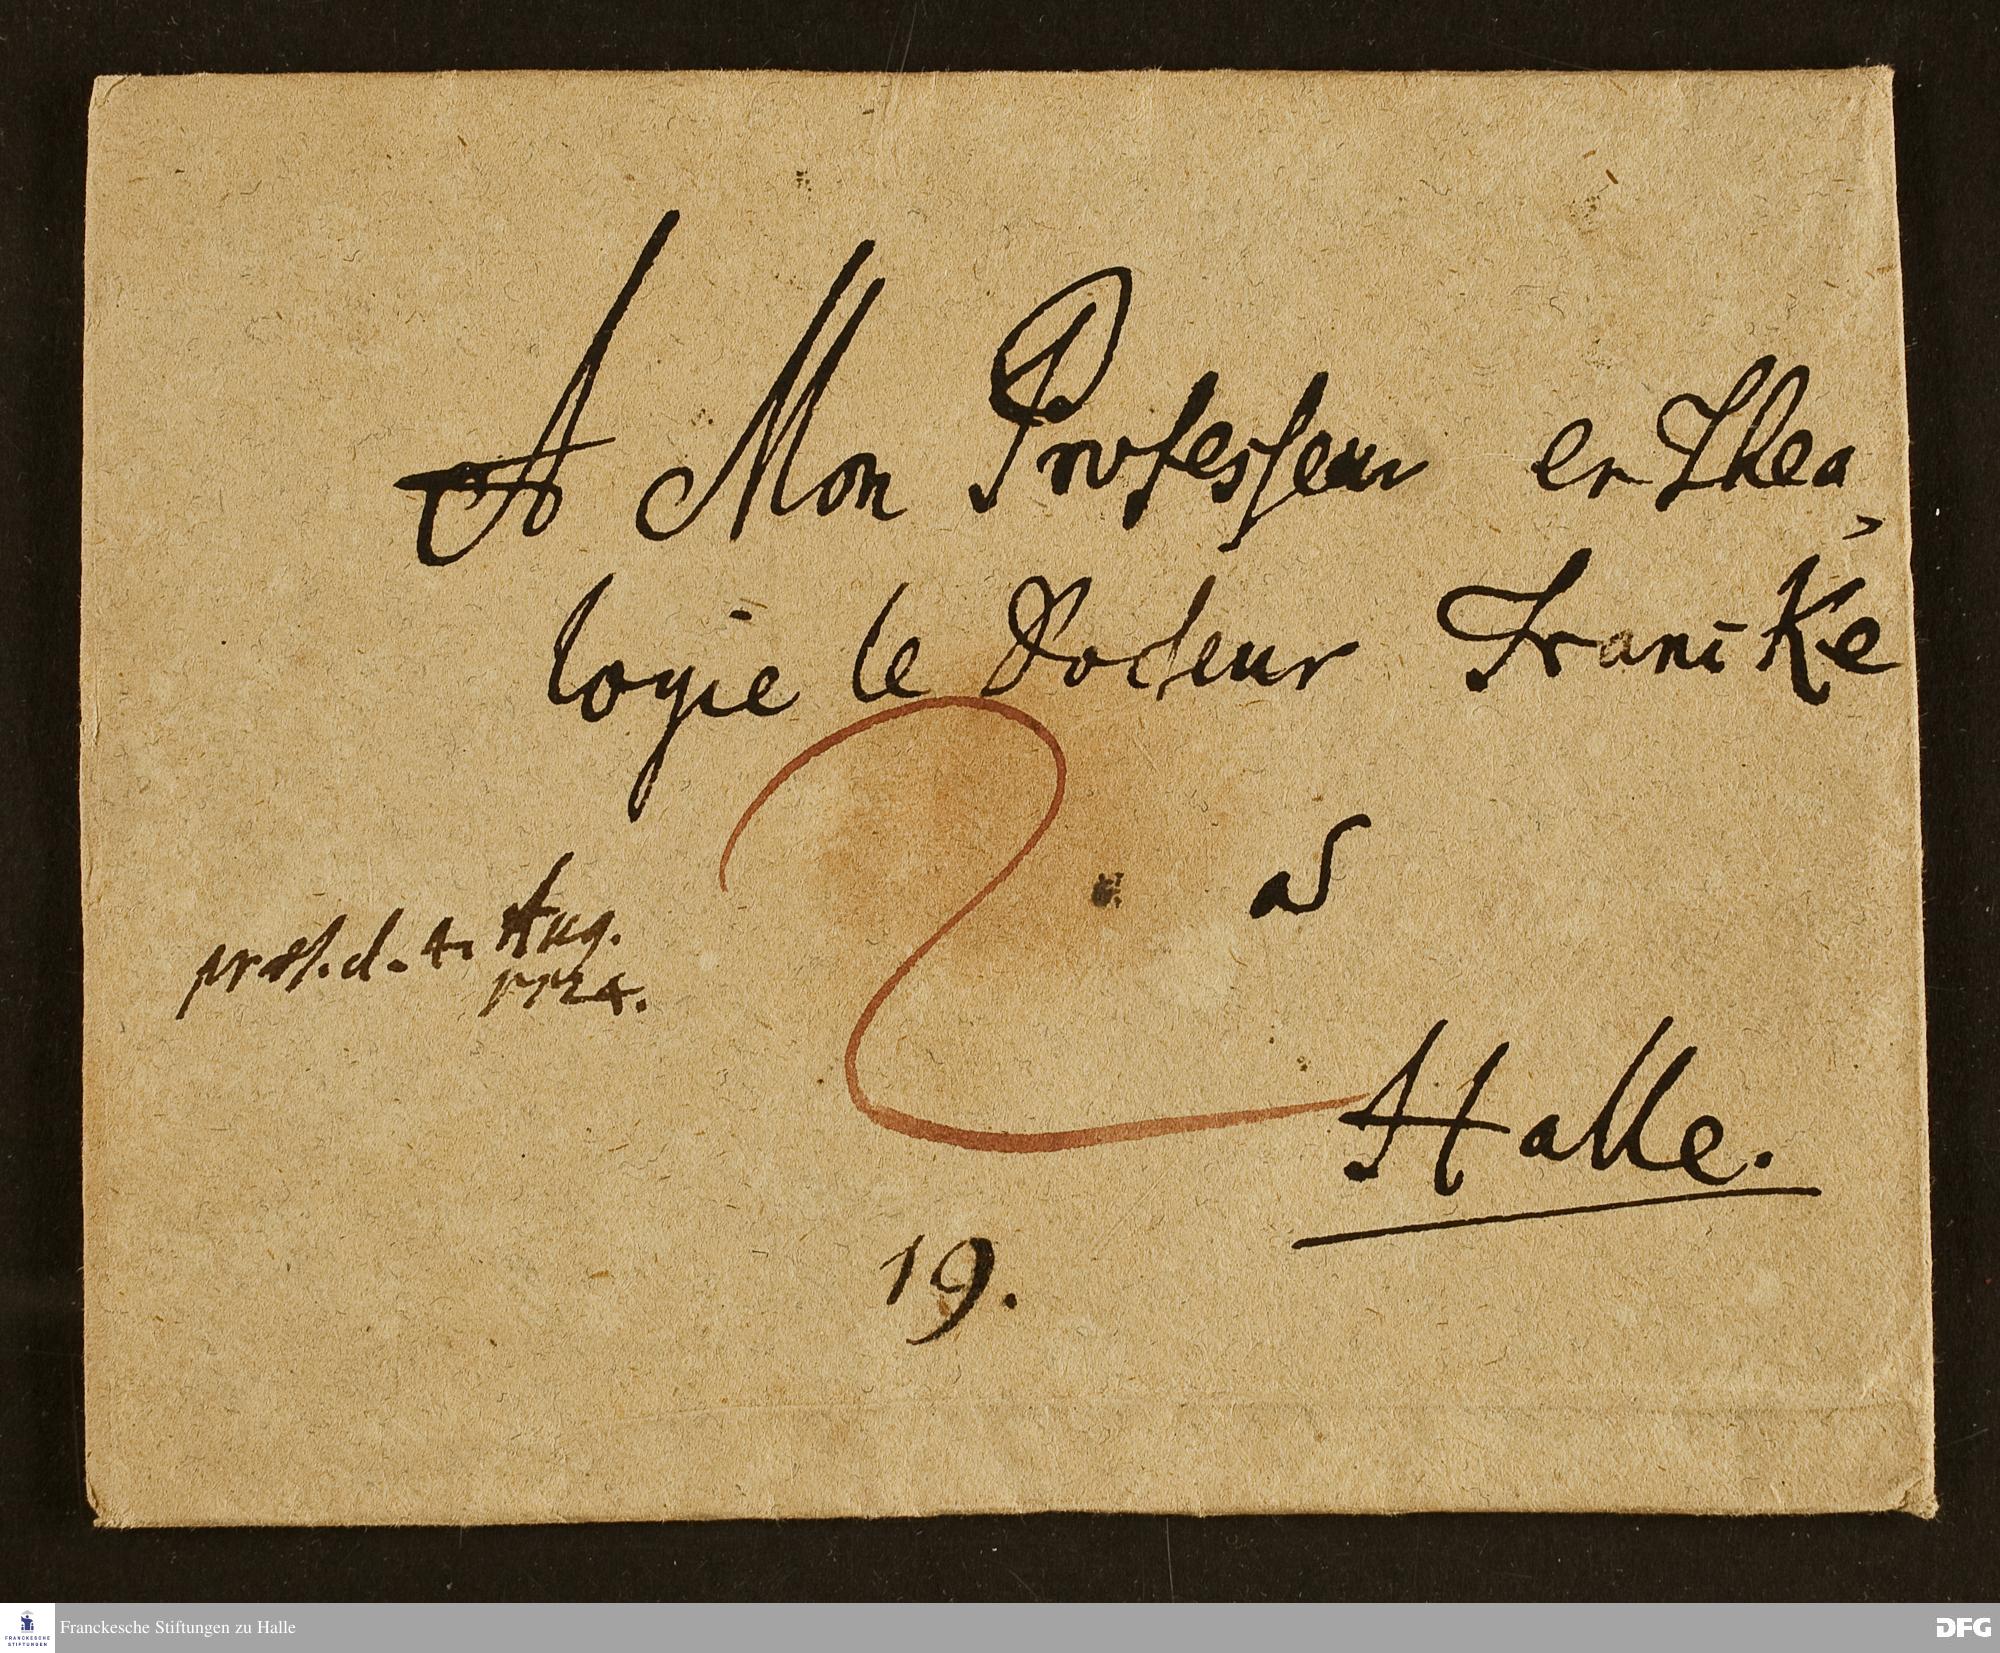 A Mon Professeur en Thea,
logie le Docteur Francke
a
præs. d. 4. Aug.
1724.
Halle.
19.
Franckesche Stiftungen zu Halle
FRANCKESCHE
STIFTUNGEN
DFG